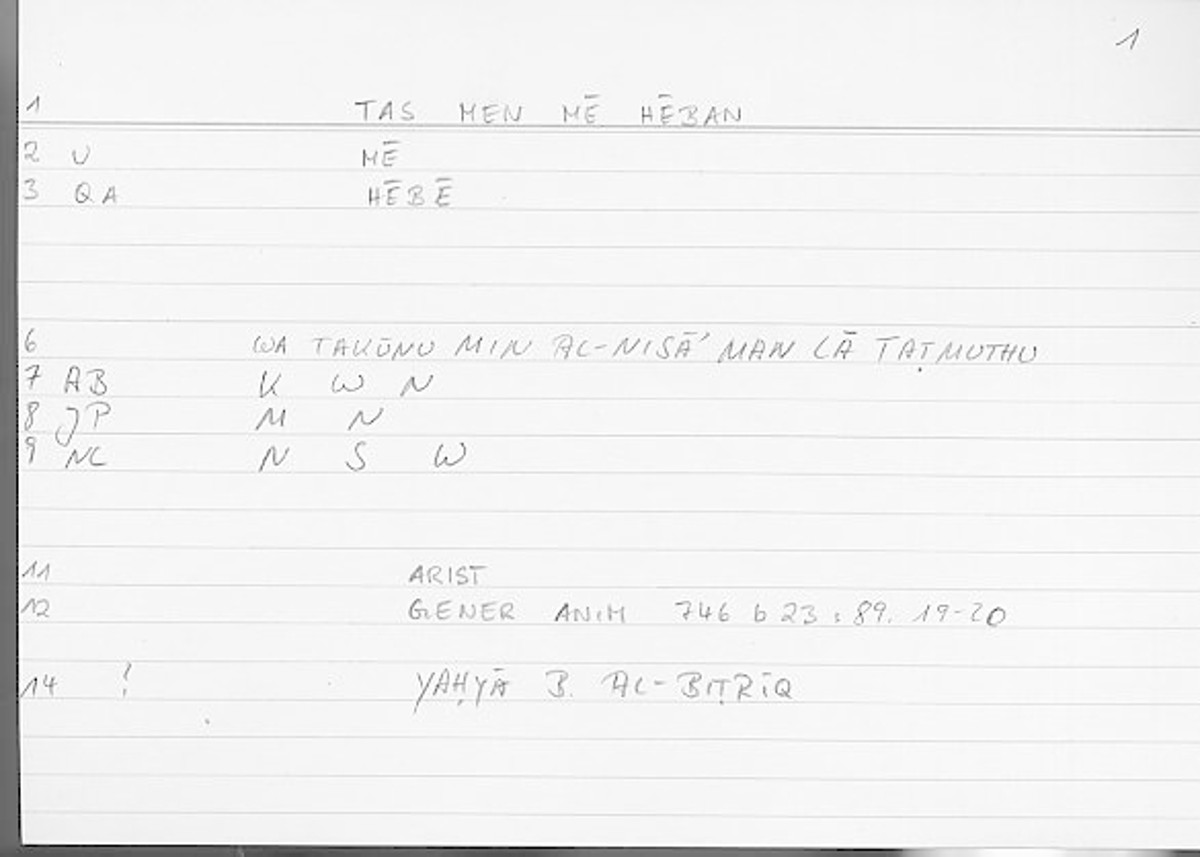 1
1 TAS MEN MĒ HĒBAN
2 U MĒ
3 QA HĒBĒ
6 WA TAKŪNU MIN AL-NISĀʾ MAN LĀ TAṬMUTHU
7 AB K W N
8 JP M N
9 NC N S W
11 ARIST
12 GENER ANIM 746 b 23 : 89. 19-20
14 ! YAḤYĀ B. AL-BIṬRĪQ